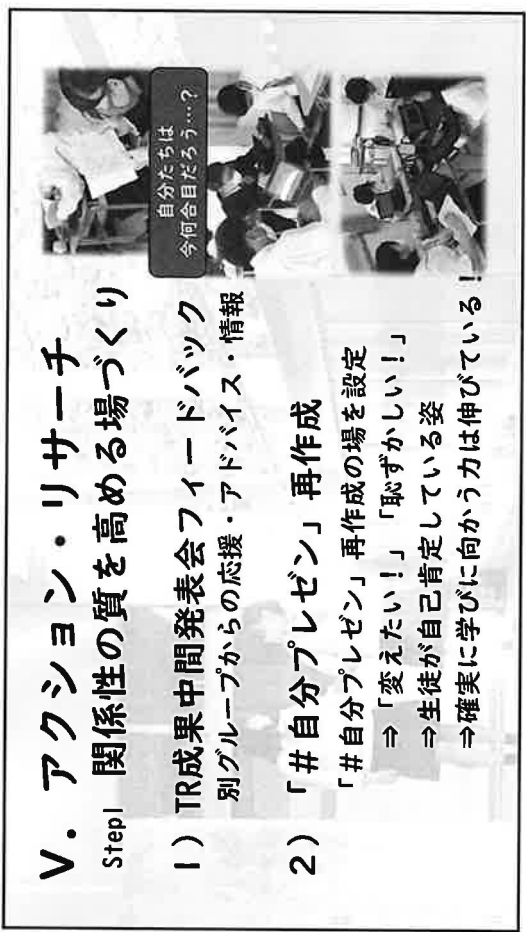 Ⅴ. アクション・リサーチ
Step1 関係性の質を高める場づくり
1) TR成果中間発表会フィードバック
別グループからの応援・アドバイス・情報
2) 「#自分プレゼン」再作成
「#自分プレゼン」再作成の場を設定
⇒「変えたい!」「恥ずかしい!」
⇒生徒が自己肯定している姿
⇒確実に学びに向かう力は伸びている!
自分たちは
今何合目だろう…?